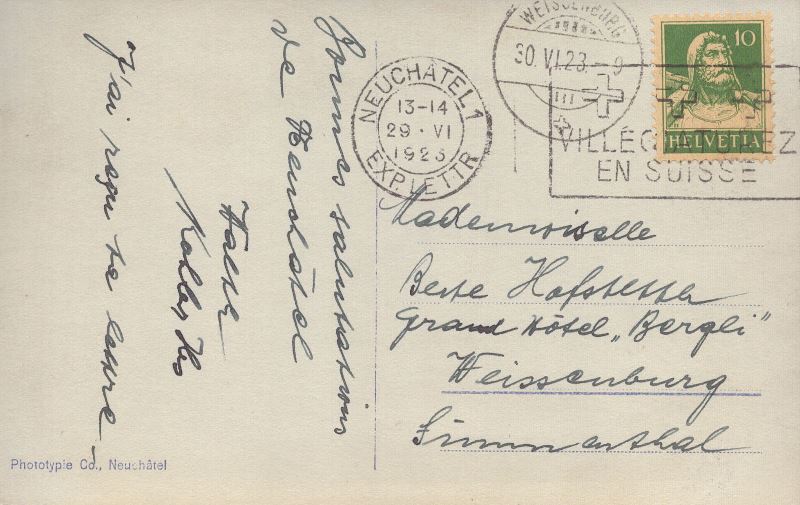 Bonnes salutations
de Neuchâtel
J'ai reçu ta lettre
NEUCHÂTEL 1
13-14
29 · VI
1923
EXP. LETTR
WEISSENBURG
30. VI. 23. - 9
10
HELVETIA
VILLÉGIATUREZ
EN SUISSE
Mademoiselle
Berte Hofstetter
Grand Hôtel „Bergli"
Weissenburg
Simmenthal
Phototypie Co., Neuchâtel